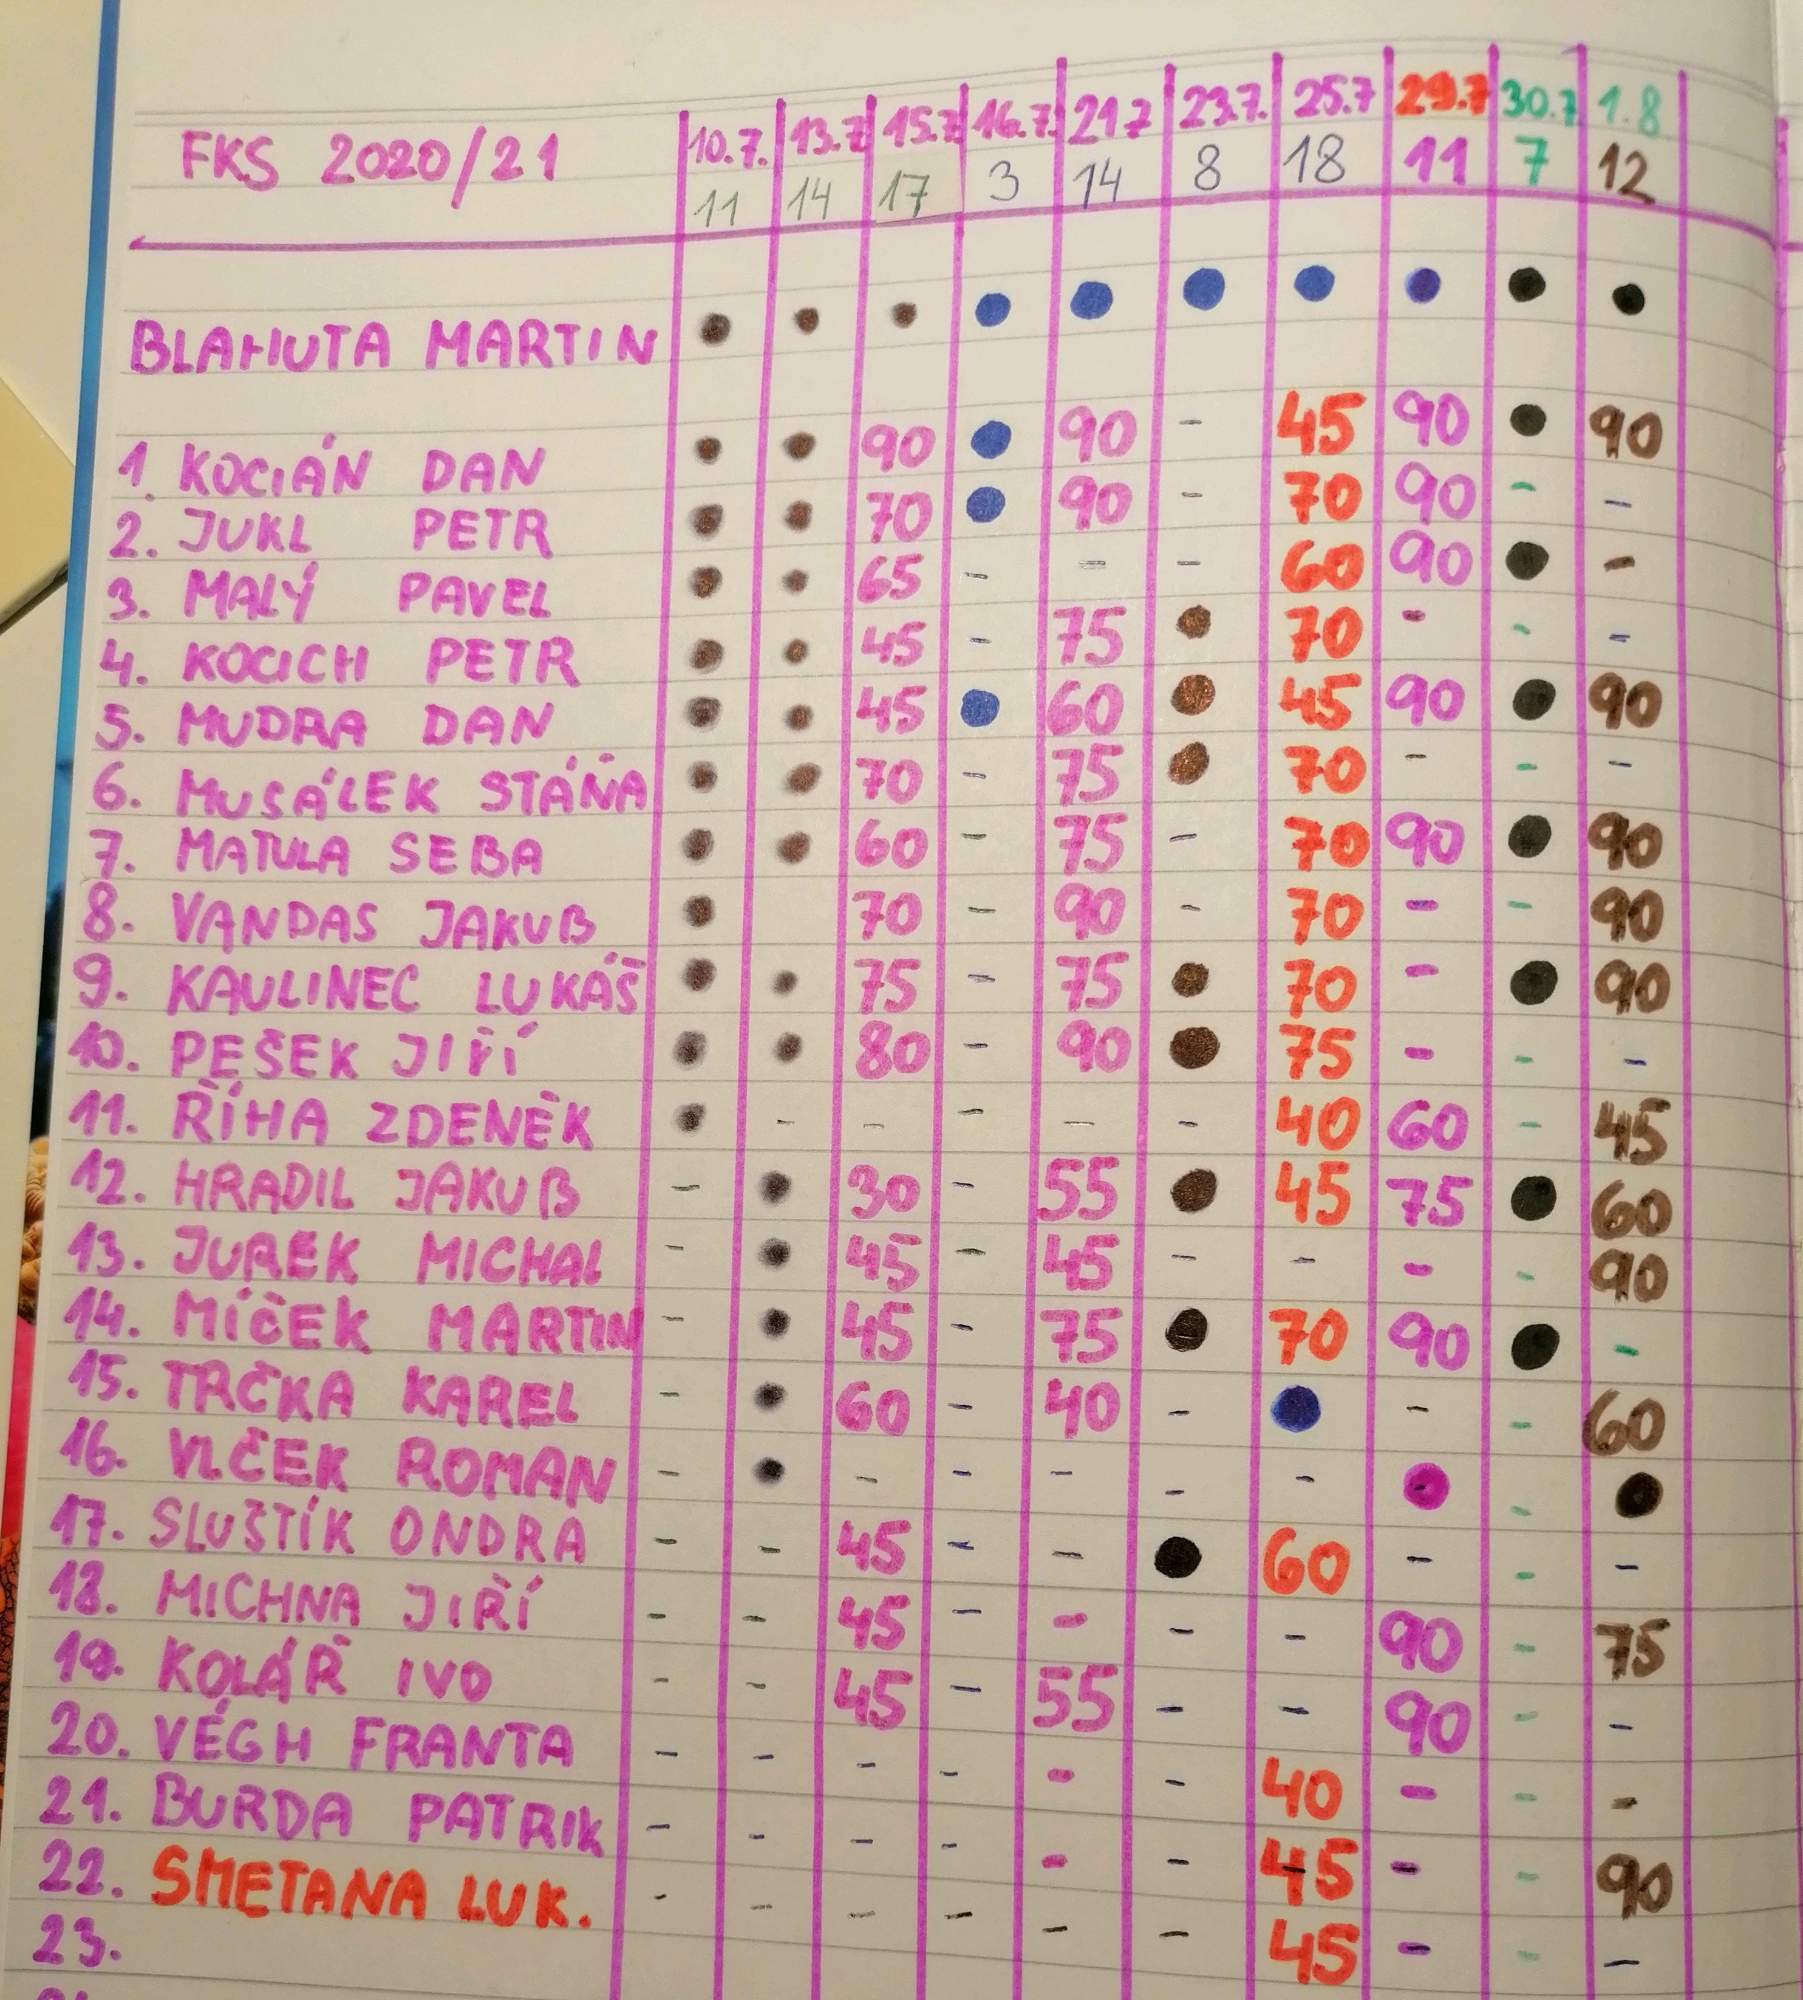 FKS 2020/21 10.7. 13.7 15.7 16.7. 21.7 23.7. 25.7 29.7 30.7 1.8
11 14 17 3 14 8 18 11 7 12
BLAHUTA MARTIN
1. KOCIÁN DAN 90 90 - 45 90 90
2. JUKL PETR 70 90 - 70 90 - -
3. MALÝ PAVEL 65 - - - 60 90 -
4. KOCICH PETR 45 - 75 70 - - -
5. MUDRA DAN 45 60 45 90 90
6. MUSÁLEK STÁŇA 70 - 75 70 - - -
7. MATULA SEBA 60 - 75 - 70 90 90
8. VANDAS JAKUB 70 - 90 - 70 - - 90
9. KAULINEC LUKÁŠ 75 - 75 70 - 90
10. PEŠEK JIŘÍ 80 - 90 75 - - -
11. ŘÍHA ZDENĚK - - - - - 40 60 - 45
12. HRADIL JAKUB - 30 - 55 45 75 60
13. JUREK MICHAL - 45 - 45 - - - - 90
14. MÍČEK MARTIN - 45 - 75 70 90 -
15. TRČKA KAREL - 60 - 40 - - - 60
16. VLČEK ROMAN - - - - - - -
17. SLUŠTÍK ONDRA - - 45 - - 60 - - -
18. MICHNA JIŘÍ - - 45 - - - - 90 - 75
19. KOLÁŘ IVO - - 45 - 55 - - 90 - -
20. VÉGH FRANTA - - - - - - 40 - - -
21. BURDA PATRIK - - - - - - 45 - - 90
22. SMETANA LUK. - - - - - - 45 - - -
23.